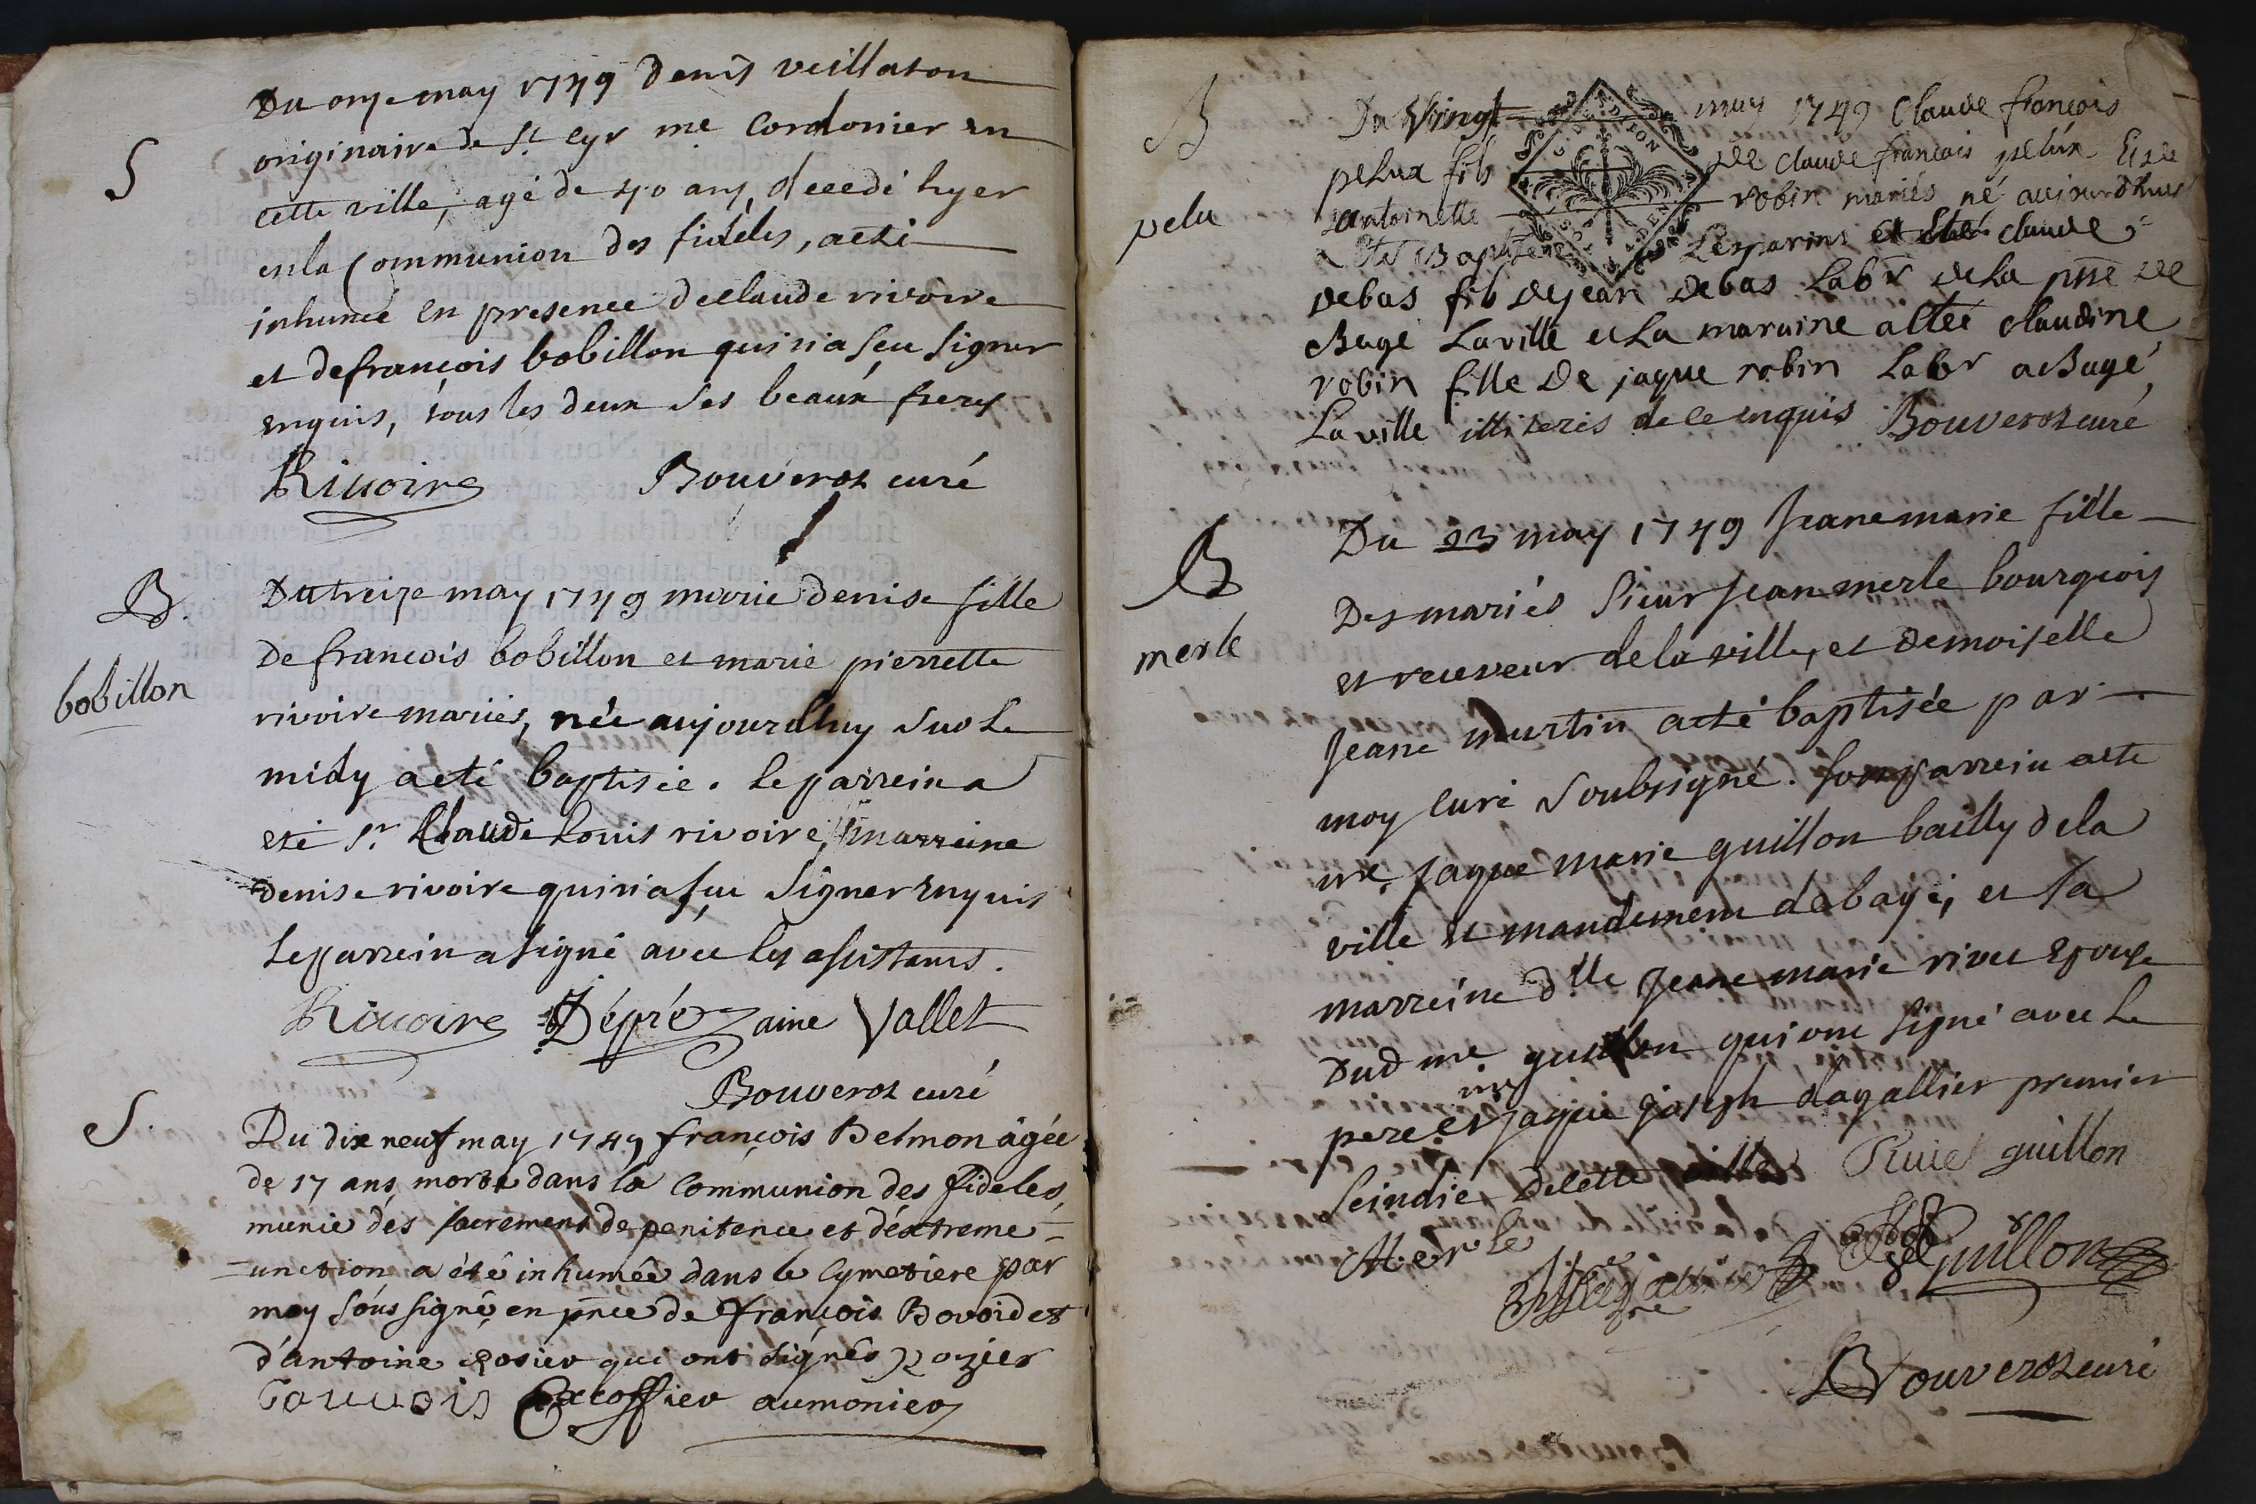 S
Du onze may 1749 denis veillaton
originaire de St Cyr me Cordonier en
cette ville, agé de 40 ans, decedé hyer
en la Communion des fidéles, a eté
inhumé en presence de claude rivoire
et de françois bobillon qui n'a sçeu signer
enquis, tous les deux ses beaux freres
Rivoire Bouverot curé
B.
bobillon
Du treize may 1749 marie denise fille
de francois bobillon et marie pierrette
rivoire mariés, née aujourdhuy sur le
midy a eté baptisée. le parrein a
eté Sr. Claude Louis rivoire, marreine
denise rivoire qui n'a sçu signer enquis
le parrein a signé avec les assistans.
Rivoire Dépréz ainé Vallet
Bouverot curé
S.
Du dix neuf may 1749 françois Belmon âgée
de 17 ans morte dans la Communion des fideles
munie des sacremens de penitence et d'éxtreme =
= unction a été inhumée dans le Cymetiere par
moy sous signé en pnce de françois Bovoid et
d'antoine rosier qui ont signés rozier
Excoffier aumonier
B
pelu
Du Vingt may 1749 Claude françois
pelux fils de claude françois pelux Et de
antoinette robin mariés né aujourdhui
a eté Baptisé Le parrin a eté claude
debas fils de jean debas Labr de La psse de
Bagé La ville et La maraine a etée claudine
robin fille de jaque robin Labr a Bagé
La ville illiterés de ce enquis Bouverot curé
B
merle
Du 23 may 1749 Jeane marie fille
Des mariés Sieur Jean merle bourgeois
et receveur de la ville, et Demoiselle
Jeane martin a eté baptisée par
moy Curé soubsigné. son parrein a eté
me. Jaque marie guillon bailly de la
ville et mandement de bagé, et sa
marreine dlle Jeane marie rivet epouse
Dud me guillon qui ont signé avec le
pere et me jaque joseph dagallier premier
scindic de cette ville Rivet guillon
Merle Guillon
Bouverot curé